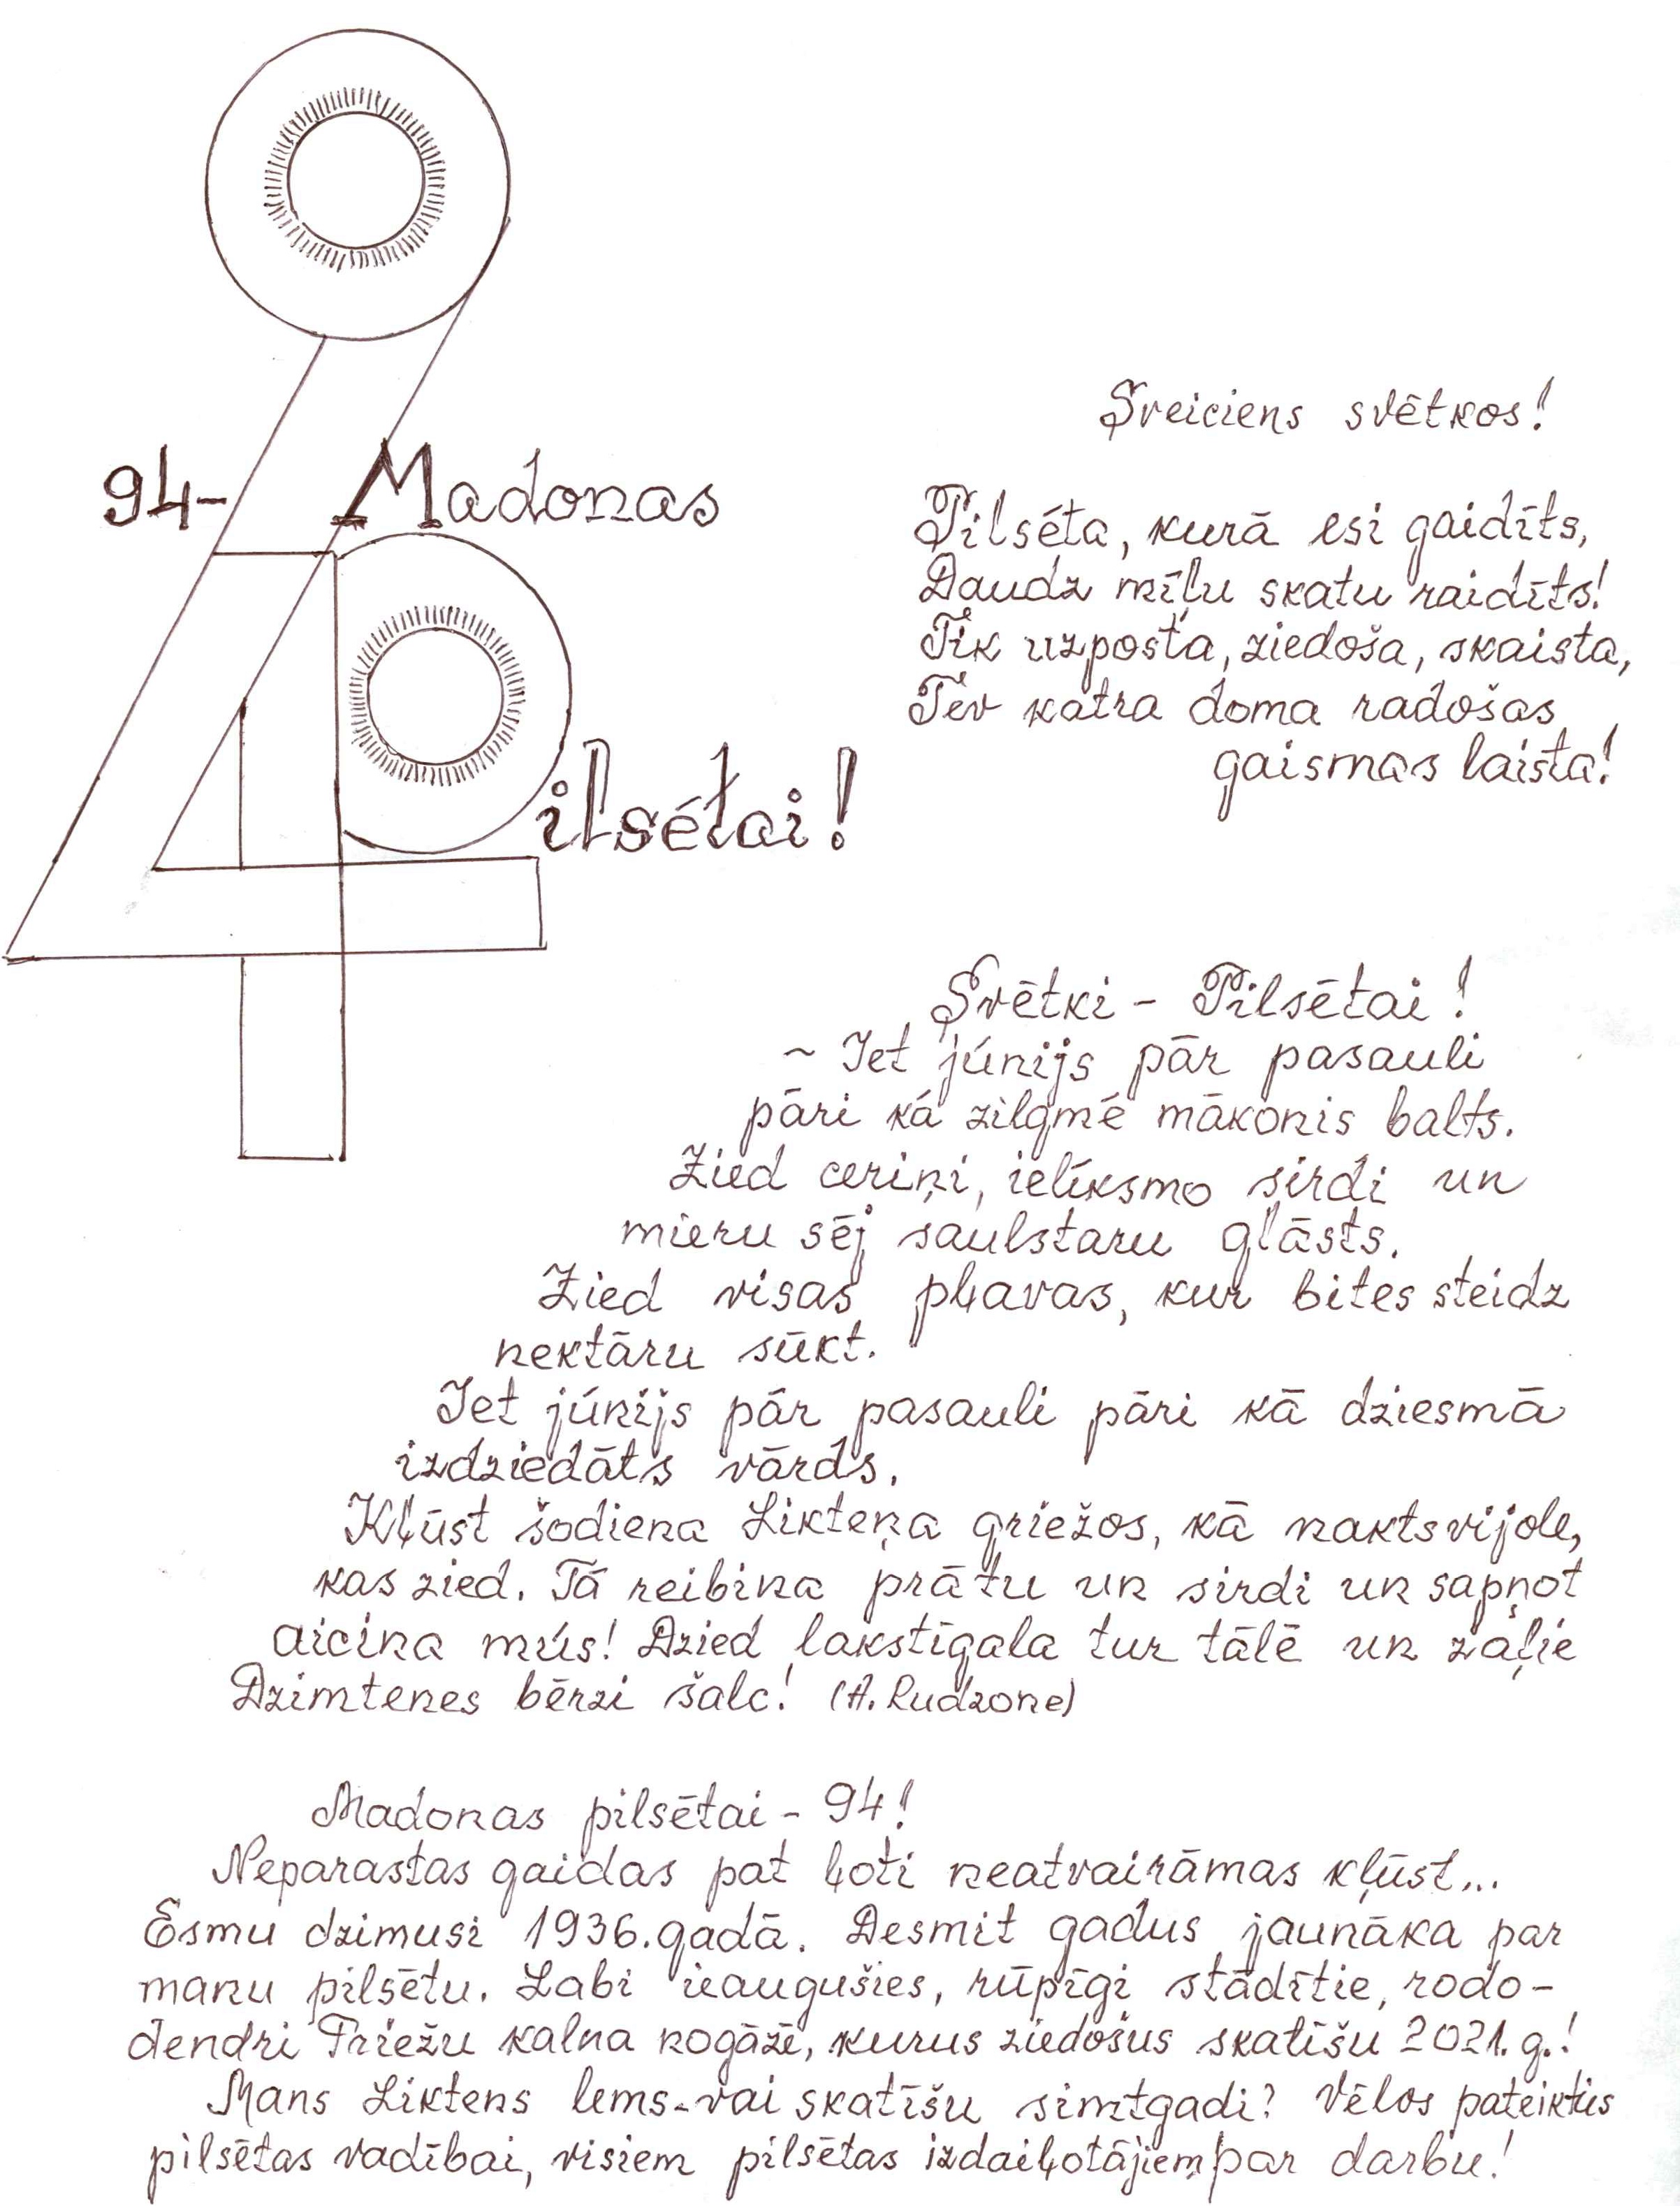 94- Madonas
Pilsētai!
Sveiciens svētkos!
Pilsēta, kurā esi gaidīts,
Daudz mīļu skatu raidīts!
Tik uzposta, ziedoša, skaista,
Tev katra doma radošas
gaismas laista!
Svētki - Pilsētai!
~ Iet jūnijs pār pasauli
pāri kā zilgmē mākonis balts.
Zied ceriņi, ielīksmo sirdi un
mieru sēj saulstaru glāsts.
Zied visas pļavas, kur bites steidz
nektāru sūkt.
Iet jūnijs pār pasauli pāri kā dziesmā
izdziedāts vārds.
Kļūst šodiena Likteņa griežos, kā naktsvijole,
kas zied. Tā reibina prātu un sirdi un sapņot
aicina mūs! Dzied lakstīgala tur tālē un zaļie
Dzimtenes bērzi šalc! (A. Rudzone)
Madonas pilsētai - 94!
Neparastas gaidas pat ļoti neatvairāmas kļūst...
Esmu dzimusi 1936. gadā. Desmit gadus jaunāka par
manu pilsētu. Labi ieaugušies, rūpīgi stādītie, rodo-
dendri Priežu kalna nogāzē, kurus ziedošus skatīšu 2021. g.!
Mans Liktens lems - vai skatīšu simtgadi? Vēlos pateikties
pilsētas vadībai, visiem pilsētas izdaiļotājiem par darbu!